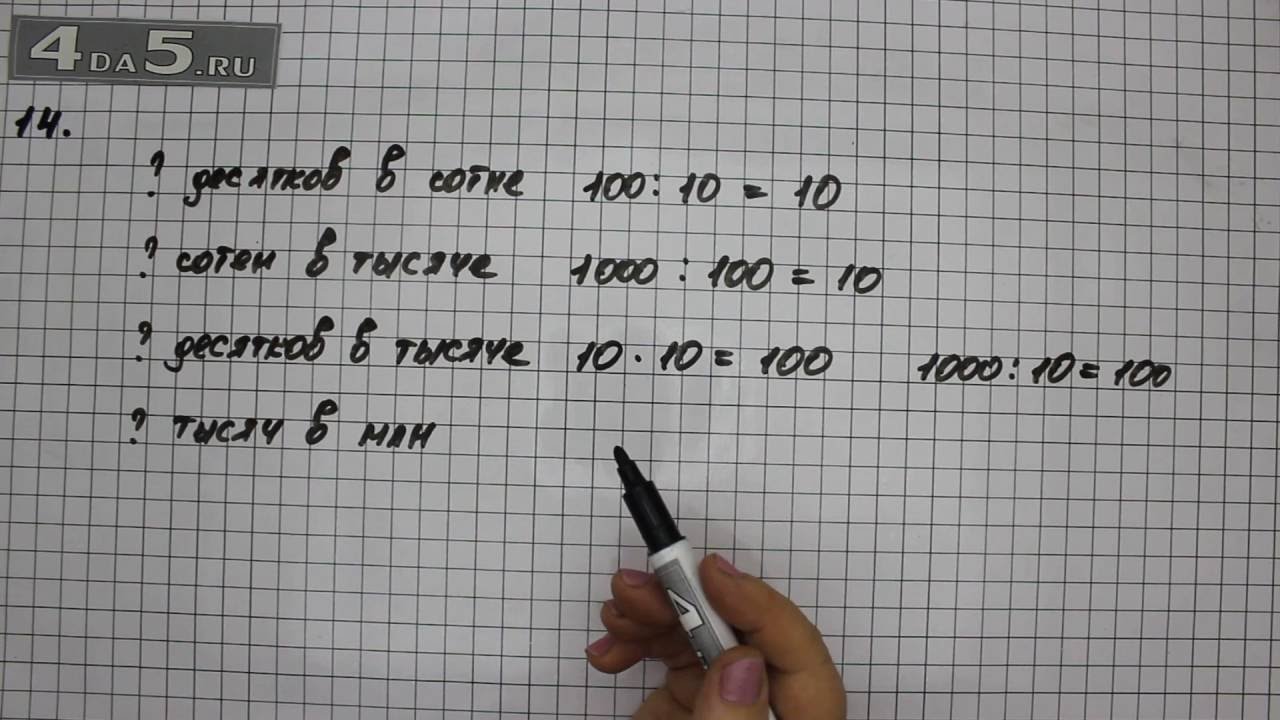 4DA5.RU
14.
? десятков в сотне 100 : 10 = 10
? сотен в тысяче 1000 : 100 = 10
? десятков в тысяче 10 · 10 = 100 1000 : 10 = 100
? тысяч в млн
4